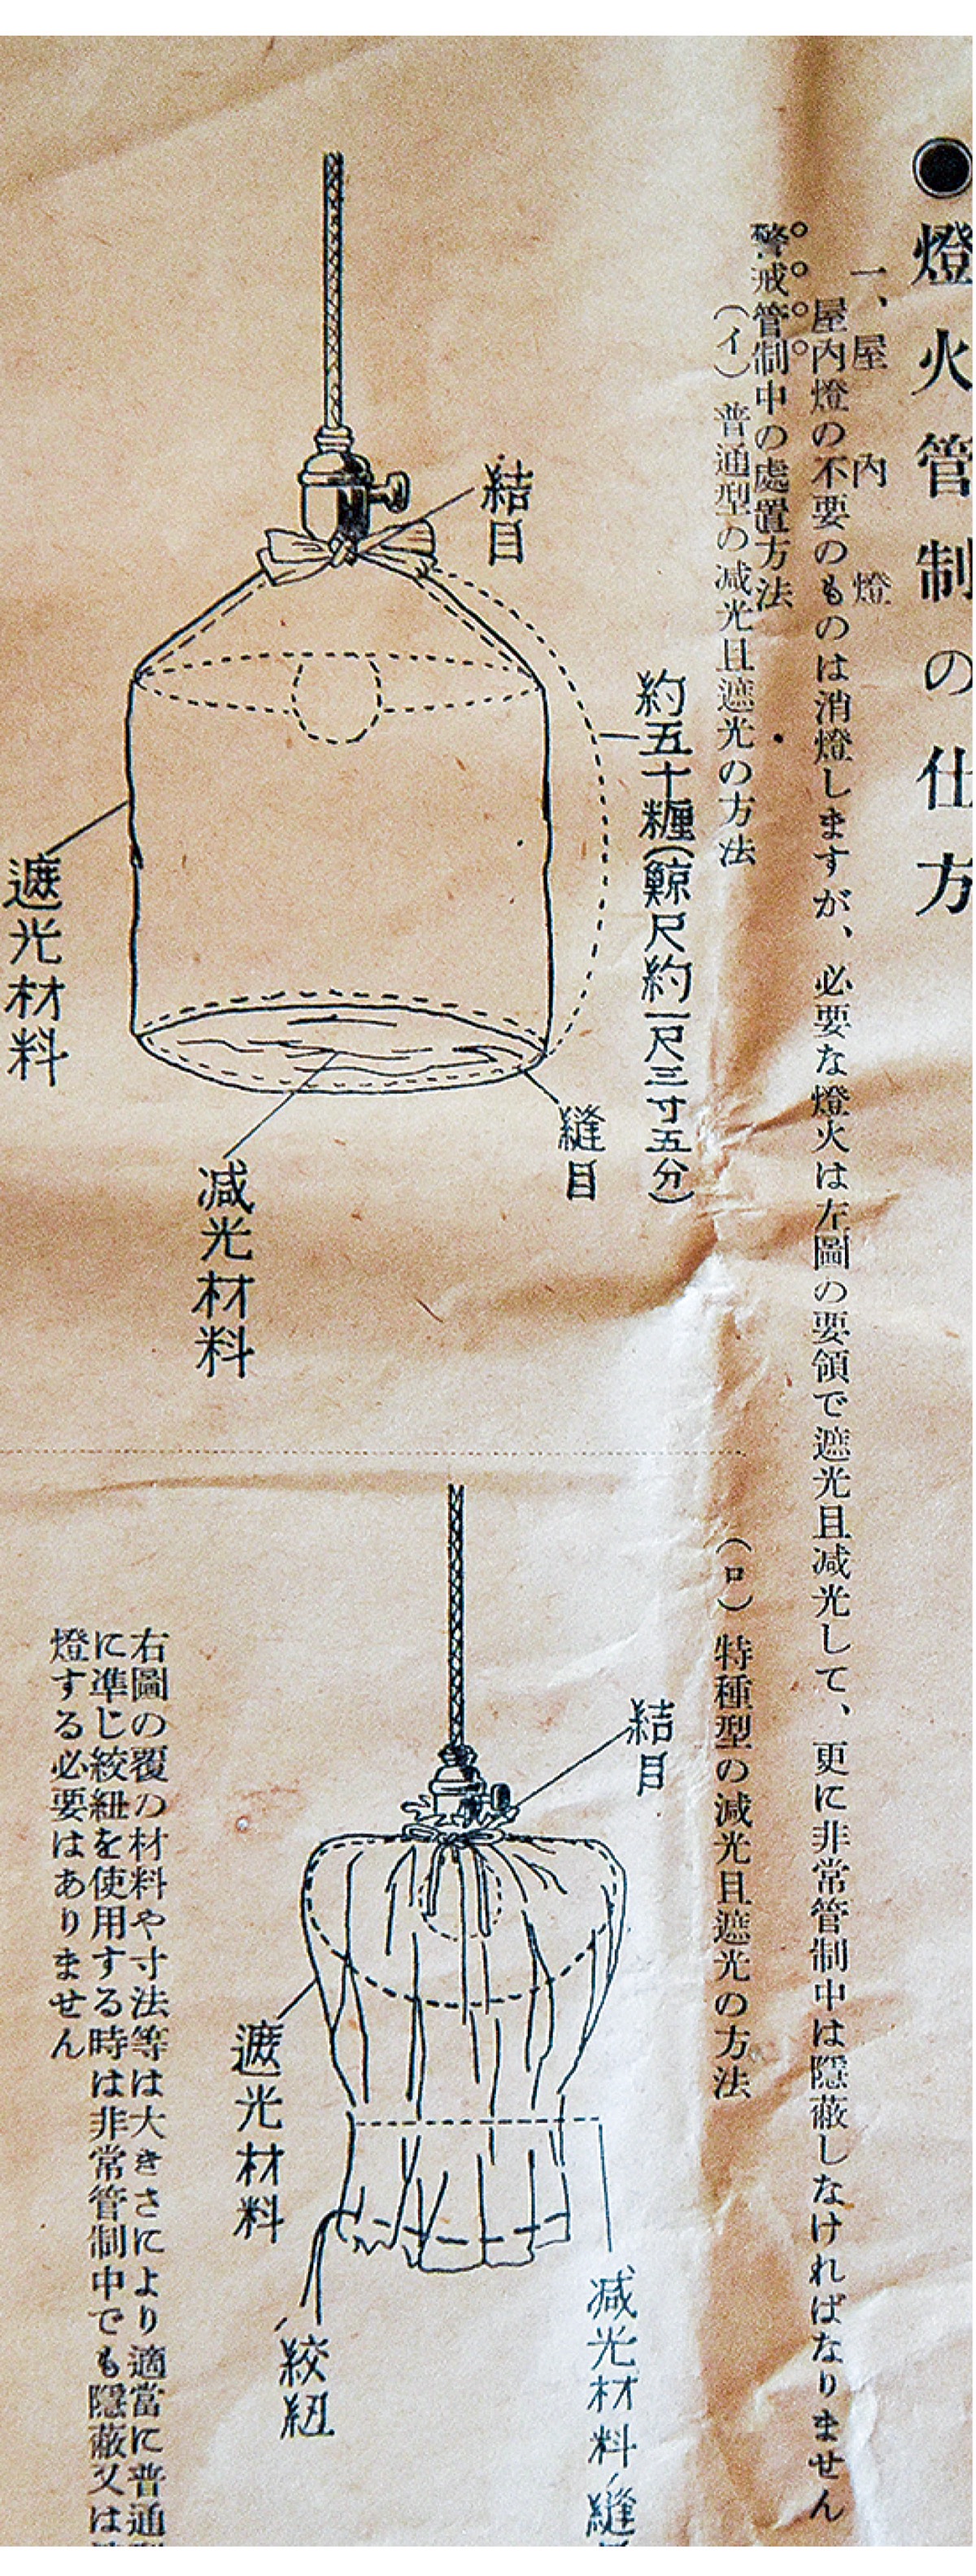 ●燈火管制の仕方
一、屋内燈
屋内燈の不要のものは消燈しますが、必要な燈火は左圖の要領で遮光且減光して、更に非常管制中は隠蔽しなければなりません
警戒管制中の處置方法
（イ）普通型の減光且遮光の方法
約五十糎（鯨尺約一尺三寸五分）
結目
縫目
減光材料
遮光材料
（ロ）特種型の減光且遮光の方法
結目
減光材料縫
絞紐
遮光材料
右圖の覆の材料や寸法等は大きさにより適當に普通
に準じ絞紐を使用する時は非常管制中でも隠蔽又は
燈する必要はありません